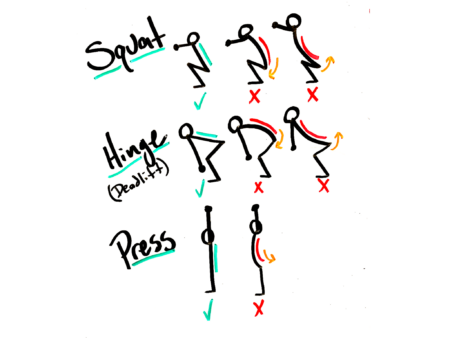 Squat
Hinge
(Deadlift)
Press